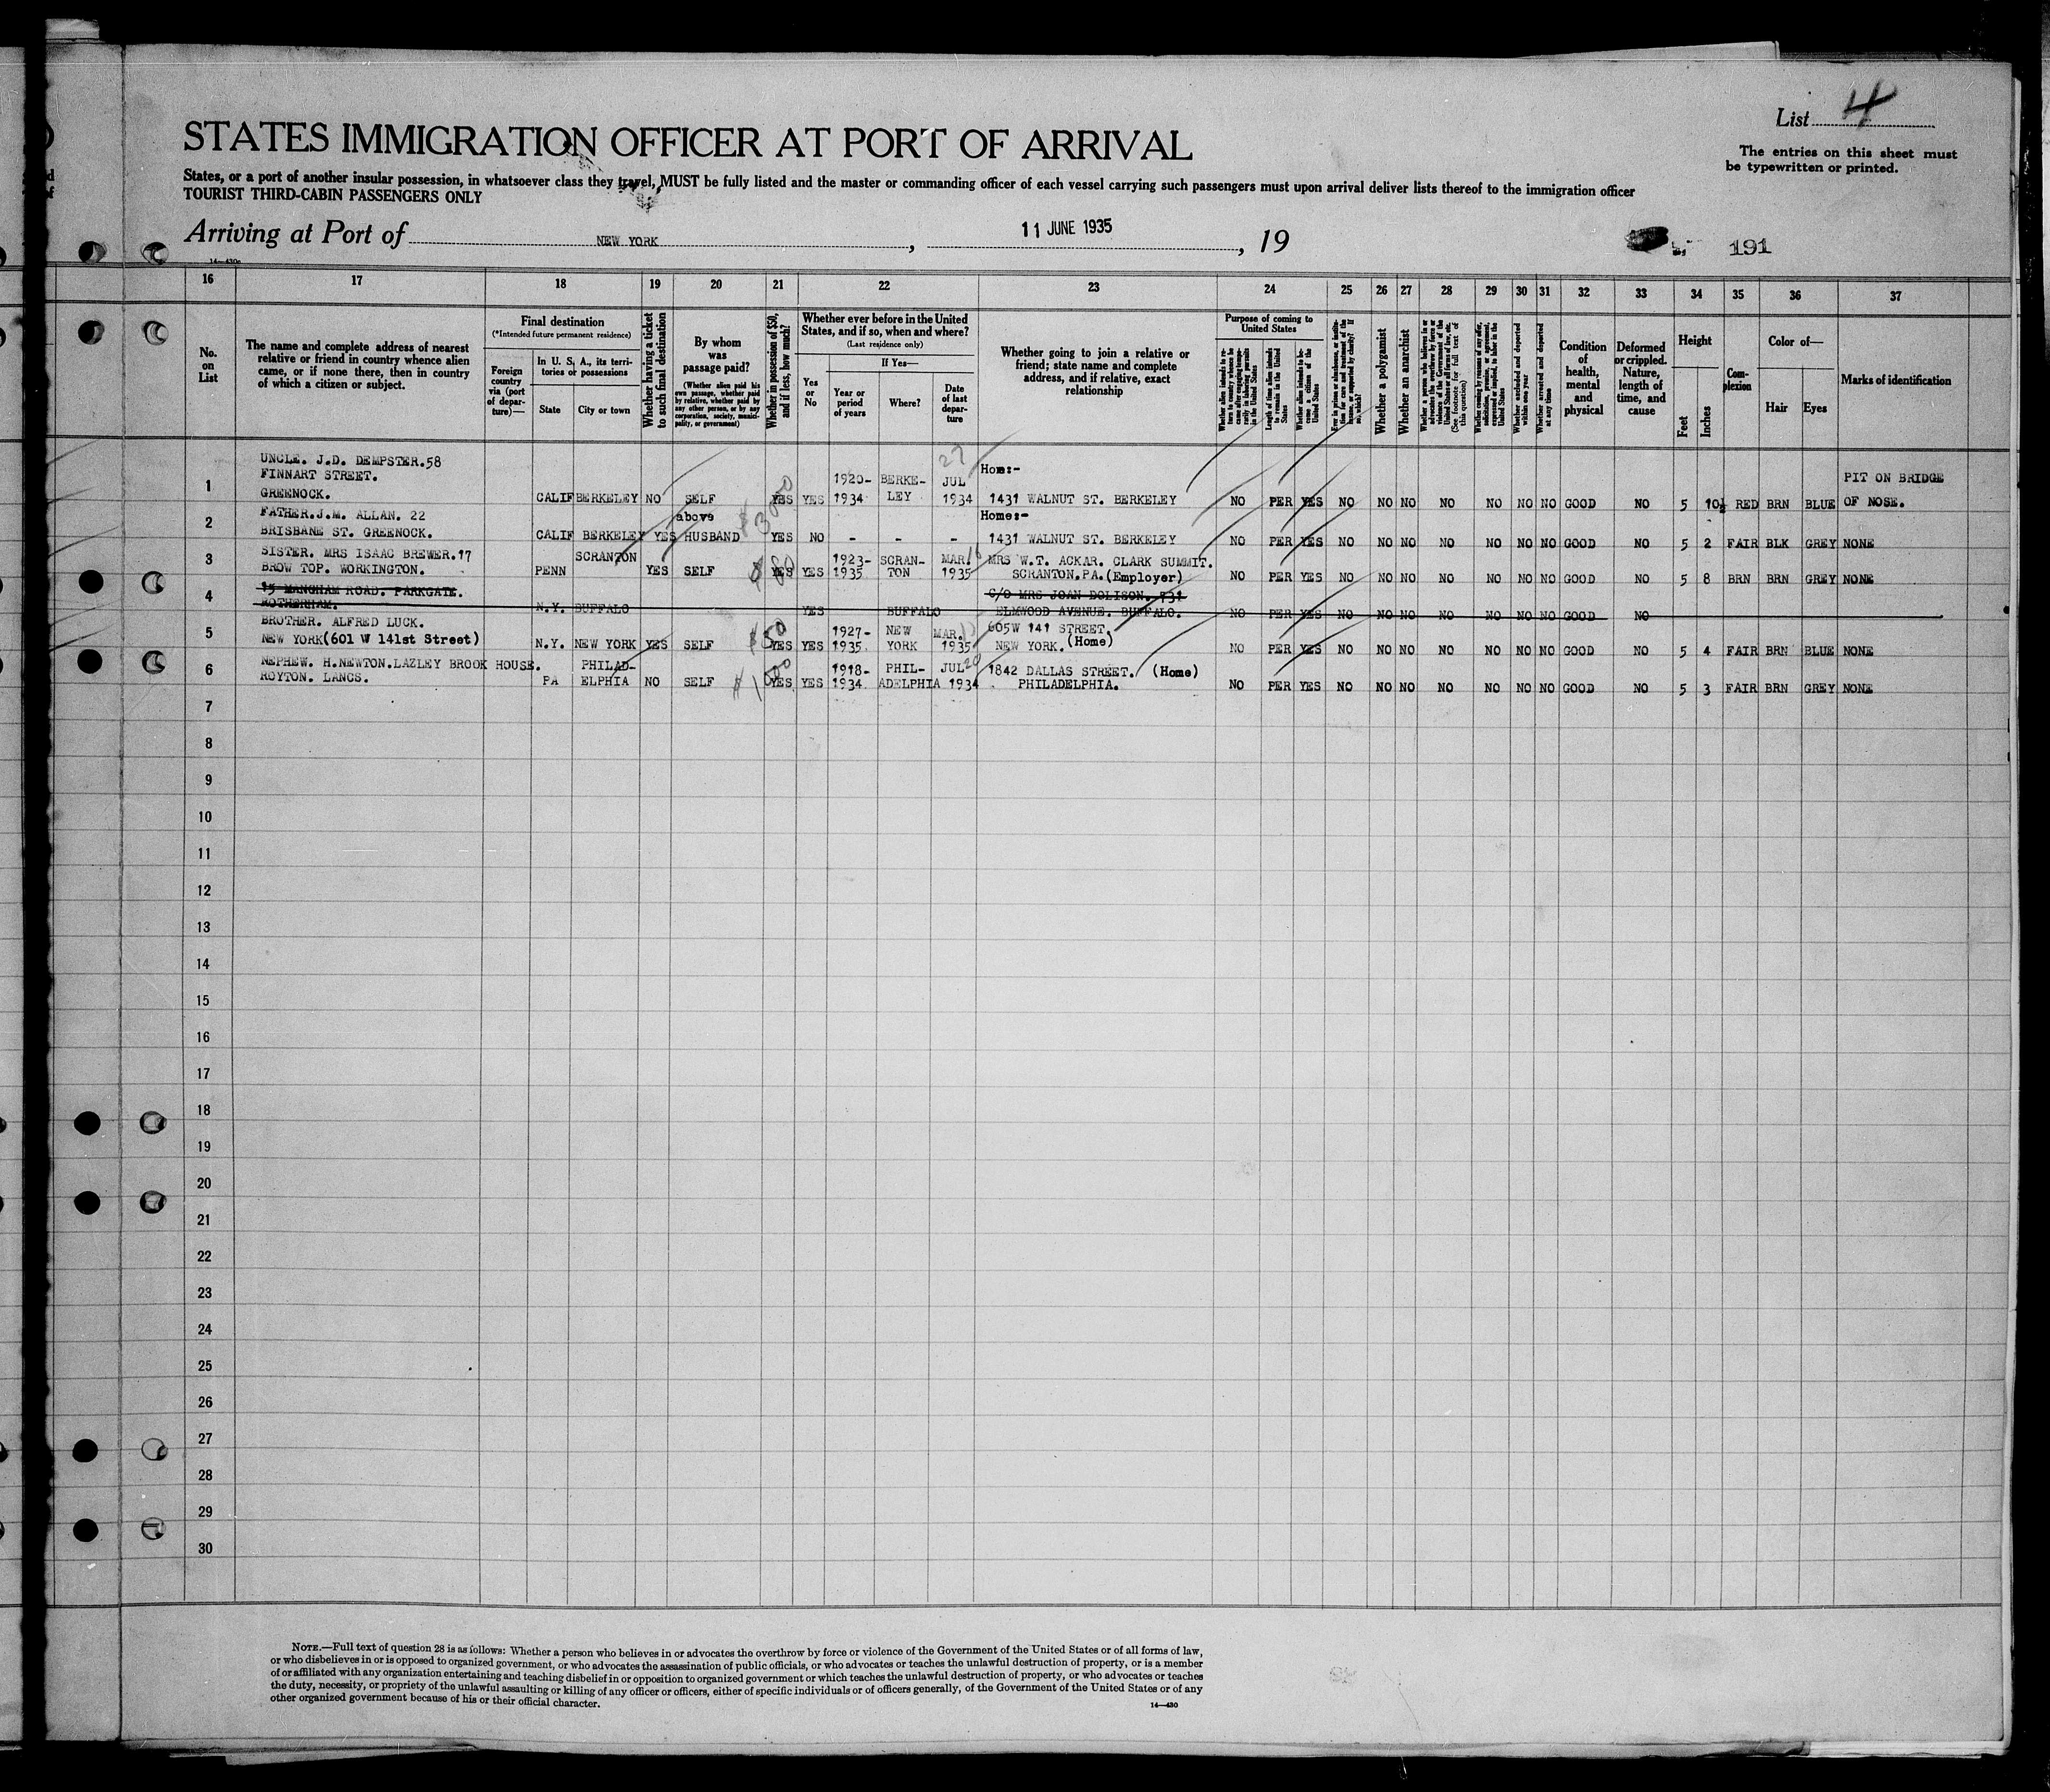 List 4
STATES IMMIGRATION OFFICER AT PORT OF ARRIVAL
The entries on this sheet must
be typewritten or printed.
States, or a port of another insular possession, in whatsoever class they travel, MUST be fully listed and the master or commanding officer of each vessel carrying such passengers must upon arrival deliver lists thereof to the immigration officer
TOURIST THIRD-CABIN PASSENGERS ONLY
Arriving at Port of NEW YORK, 11 JUNE 1935, 19
191
16 17 18 19 20 21 22 23 24 25 26 27 28 29 30 31 32 33 34 35 36 37
No.
on
List
The name and complete address of nearest
relative or friend in country whence alien
came, or if none there, then in country
of which a citizen or subject.
Final destination
(*Intended future permanent residence)
Foreign
country
via (port
of depar-
ture)—
In U. S. A., its terri-
tories or possessions
State City or town
Whether having a ticket
to such final destination
By whom
was
passage paid?
(Whether alien paid his
own passage, whether paid
by relative, whether paid by
any other person, or by any
corporation, society, munici-
pality, or government)
Whether in possession of $50,
and if less, how much?
Whether ever before in the United
States, and if so, when and where?
(Last residence only)
Yes
or
No
If Yes—
Year or
period
of years
Where?
Date
of last
depar-
ture
Whether going to join a relative or
friend; state name and complete
address, and if relative, exact
relationship
Purpose of coming to
United States
Length of time alien intends
to remain in the United
States
Whether alien intends to be-
come a citizen of the
United States
Whether a polygamist
Whether an anarchist
(See footnote for full text of
this question)
Whether excluded and deported
within one year
Whether arrested and deported
at any time
Condition
of
health,
mental
and
physical
Deformed
or crippled.
Nature,
length of
time, and
cause
Height
Feet Inches
Com-
plexion
Color of—
Hair Eyes
Marks of identification
UNCLE. J.D. DEMPSTER.58 27 Home:-
FINNART STREET. 1920- BERKE- JUL PIT ON BRIDGE
1 GREENOCK. CALIF BERKELEY NO SELF YES YES 1934 LEY 1934 1431 WALNUT ST. BERKELEY NO PER YES NO NO NO NO NO NO NO GOOD NO 5 10½ RED BRN BLUE OF NOSE.
2 FATHER.J.M. ALLAN. 22 above Home:-
BRISBANE ST. GREENOCK. CALIF BERKELEY YES HUSBAND YES NO - - - 1431 WALNUT ST. BERKELEY NO PER YES NO NO NO NO NO NO NO GOOD NO 5 2 FAIR BLK GREY NONE
3 SISTER. MRS ISAAC BREWER.17 SCRANTON 1923- SCRAN- MAR. 16 MRS W.T. ACKAR. CLARK SUMMIT.
BROW TOP. WORKINGTON. PENN YES SELF $80 YES YES 1935 TON 1935 SCRANTON.PA.(Employer) NO PER YES NO NO NO NO NO NO NO GOOD NO 5 8 BRN BRN GREY NONE
4 15 MANGHAM ROAD. PARKGATE. C/O MRS JOAN DOLISON. 731
ROTHERHAM. N.Y. BUFFALO YES BUFFALO ELMWOOD AVENUE. BUFFALO. NO PER YES NO NO NO NO NO NO NO GOOD NO
5 BROTHER. ALFRED LUCK. 1927- NEW MAR. 605W 141 STREET.
NEW YORK(601 W 141st Street) N.Y. NEW YORK YES SELF $50 YES YES 1935 YORK 1935 NEW YORK. (Home) NO PER YES NO NO NO NO NO NO NO GOOD NO 5 4 FAIR BRN BLUE NONE
6 NEPHEW. H.NEWTON.LAZLEY BROOK HOUSE. PHILAD- 1918- PHIL- JUL 20 1842 DALLAS STREET. (Home)
ROYTON. LANCS. PA ELPHIA NO SELF $100 YES YES 1934 ADELPHIA 1934 PHILADELPHIA. NO PER YES NO NO NO NO NO NO NO GOOD NO 5 3 FAIR BRN GREY NONE
7
8
9
10
11
12
13
14
15
16
17
18
19
20
21
22
23
24
25
26
27
28
29
30
NOTE.—Full text of question 28 is as follows: Whether a person who believes in or advocates the overthrow by force or violence of the Government of the United States or of all forms of law,
or who disbelieves in or is opposed to organized government, or who advocates the assassination of public officials, or who advocates or teaches the unlawful destruction of property, or is a member
of or affiliated with any organization entertaining and teaching disbelief in or opposition to organized government or which teaches the unlawful destruction of property, or who advocates or teaches
the duty, necessity, or propriety of the unlawful assaulting or killing of any officer or officers, either of specific individuals or of officers generally, of the Government of the United States or of any
other organized government because of his or their official character.
14—430